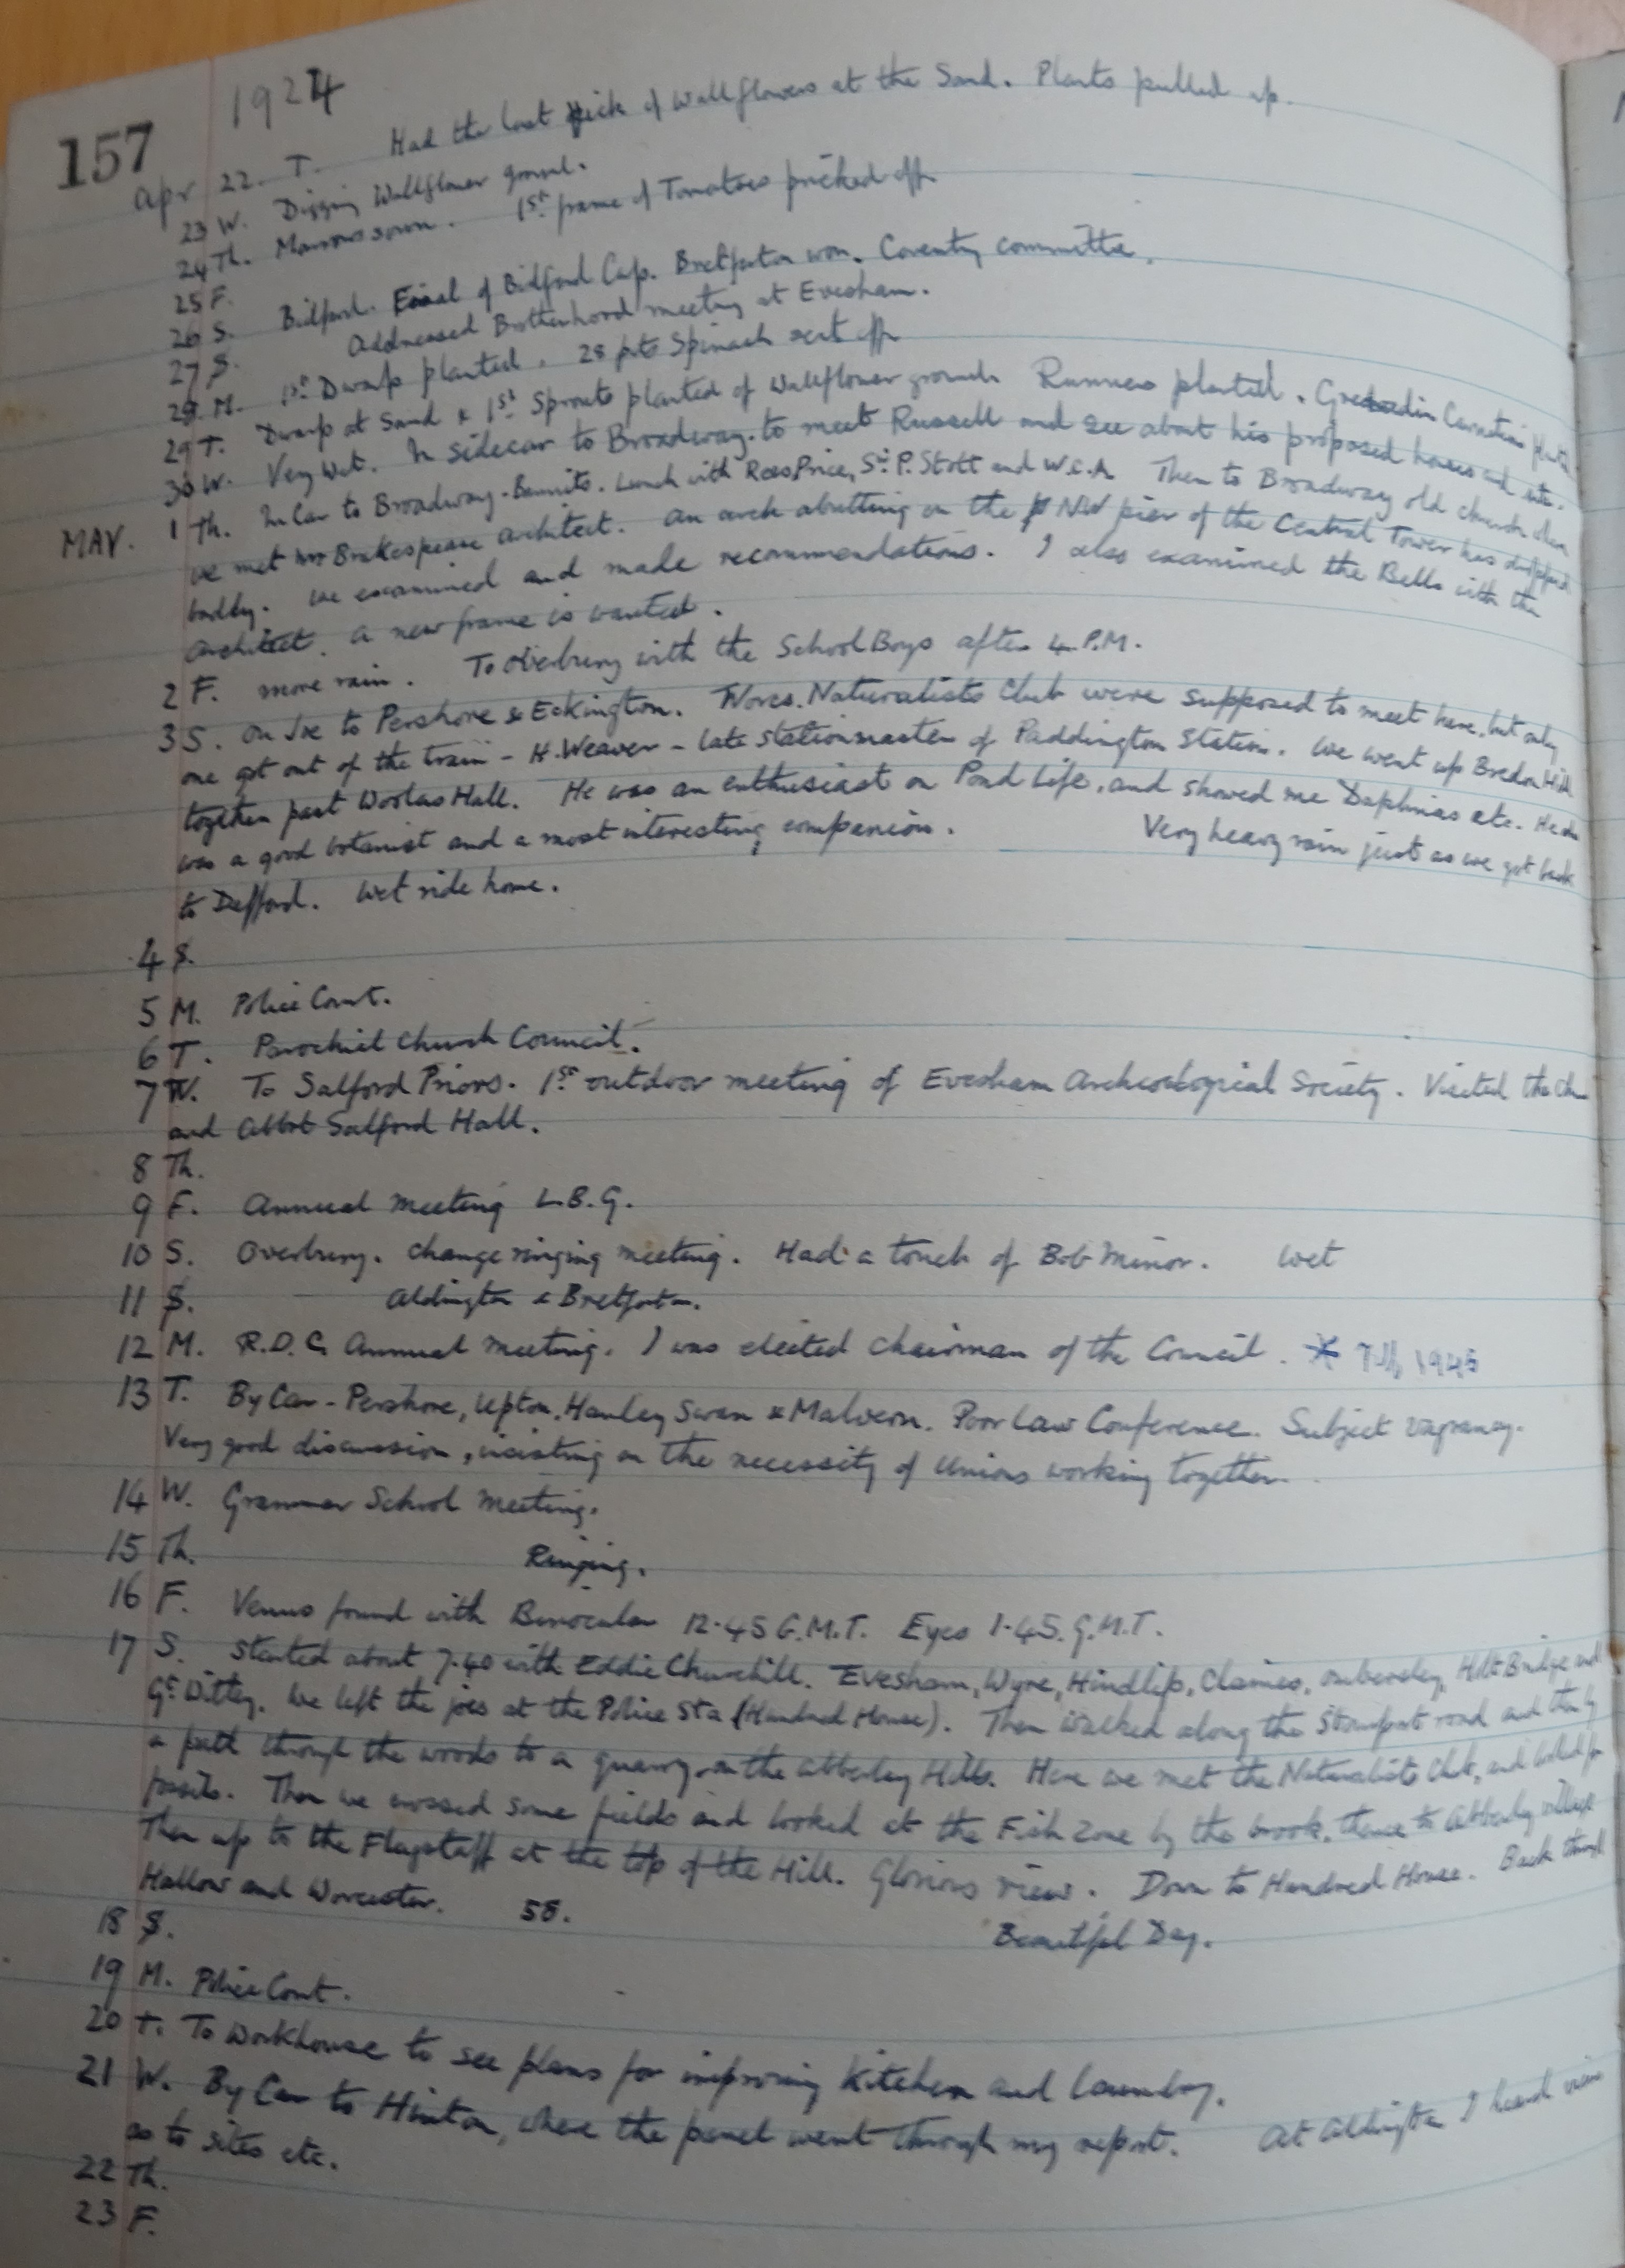 157
1924
Apr 22. T. Had the last pick of Wallflowers at the Sand. Plants pulled up.
23 W. Digging Wallflower ground.
24 Th. Marrows sown. 1st frame of Tomatoes pricked off
25 F.
26 S. Bidford. Final of Bidford Cup. Bretforton won. Coventry committee.
27 S. Addressed Brotherhood meeting at Evesham.
28. M. 1st Dwarfs planted. 28 pots Spinach sent off
29 T. Dwarfs at Sand & 1st Sprouts planted of Wallflower ground. Runners planted. Carnations planted
30 W. Very Wet. In sidecar to Broadway. to meet Russell and see about his proposed houses and sites.
MAY. 1 Th. In Car to Broadway - Bennits. Lunch with Rees Price, Sir P. Stott and W.C.A. Then to Broadway old church where
we met Mr Brakespeare architect. An arch abutting on the NW pier of the Central Tower has dropped
badly. We examined and made recommendations. I also examined the Bells with the
architect. A new frame is wanted.
2 F. more rain. To Overbury with the School Boys after 4. P.M.
3 S. On Joe to Pershore & Eckington. Worcs. Naturalists Club were supposed to meet here, but only
one got out of the train - H. Weaver - late stationmaster of Paddington Station. We went up Bredon Hill
together past Woolas Hall. He was an enthusiast on Pond Life, and showed me Daphnias etc. He also
was a good botanist and a most interesting companion. Very heavy rain just as we got back
to Defford. Wet ride home.
4 S.
5 M. Police Court.
6 T. Parochial Church Council.
7 W. To Salford Priors. 1st outdoor meeting of Evesham Archeological Society. Visited the
and Abbot Salford Hall.
8 Th.
9 F. Annual Meeting L.B.G.
10 S. Overbury. Change ringing meeting. Had a touch of Bob Minor. Wet
11 S. Aldington & Bretforton.
12 M. R.D.C. Annual Meeting. I was elected Chairman of the Council. * 1945
13 T. By Car - Pershore, Upton, Hanley Swan & Malvern. Poor Law Conference. Subject Vagrancy.
Very good discussion, insisting on the necessity of Unions working together.
14 W. Grammar School Meeting.
15 Th. Ringing.
16 F. Venus found with Binocular 12.45 G.M.T. Eyes 1.45. G.M.T.
17 S. Started about 7.40 with Eddie Churchill. Evesham, Wyre, Hindlip, Claines, Ombersley, Holt Bridge and
Gt. Witley. We left the joes at the Police Sta (Hundred House). Then walked along the Stourport road and then by
a path through the woods to a quarry on the Abberley Hills. Here we met the Naturalists Club, and looked for
fossils. Then we crossed some fields and looked at the Fish Zone by the brook, thence to Abberley village
Then up to the Flagstaff at the top of the Hill. Glorious view. Down to Hundred House. Back through
Hallow and Worcester. 58. Beautiful Day.
18 S.
19 M. Police Court.
20 T. To Workhouse to see plans for improving Kitchen and Laundry.
21 W. By Car to Hinton, where the panel went through my report. At Aldington I heard views
as to sites etc.
22 Th.
23 F.